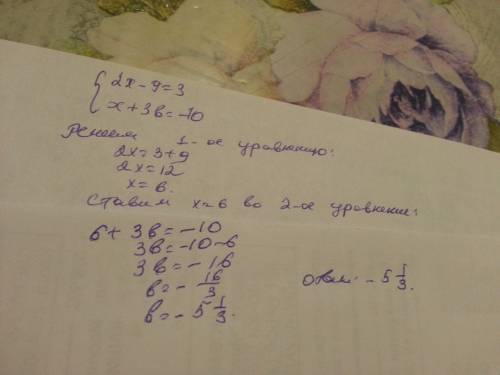 2x-9=3
x+3в=-10
Решаем 1-ое уравнение:
2x=3+9
2x=12
x=6.
Ставим x=6 во 2-ое уравнение:
6+3в=-10
3в=-10-6
3в=-16
в=-16/3
в=-5 1/3.
Ответ: -5 1/3.